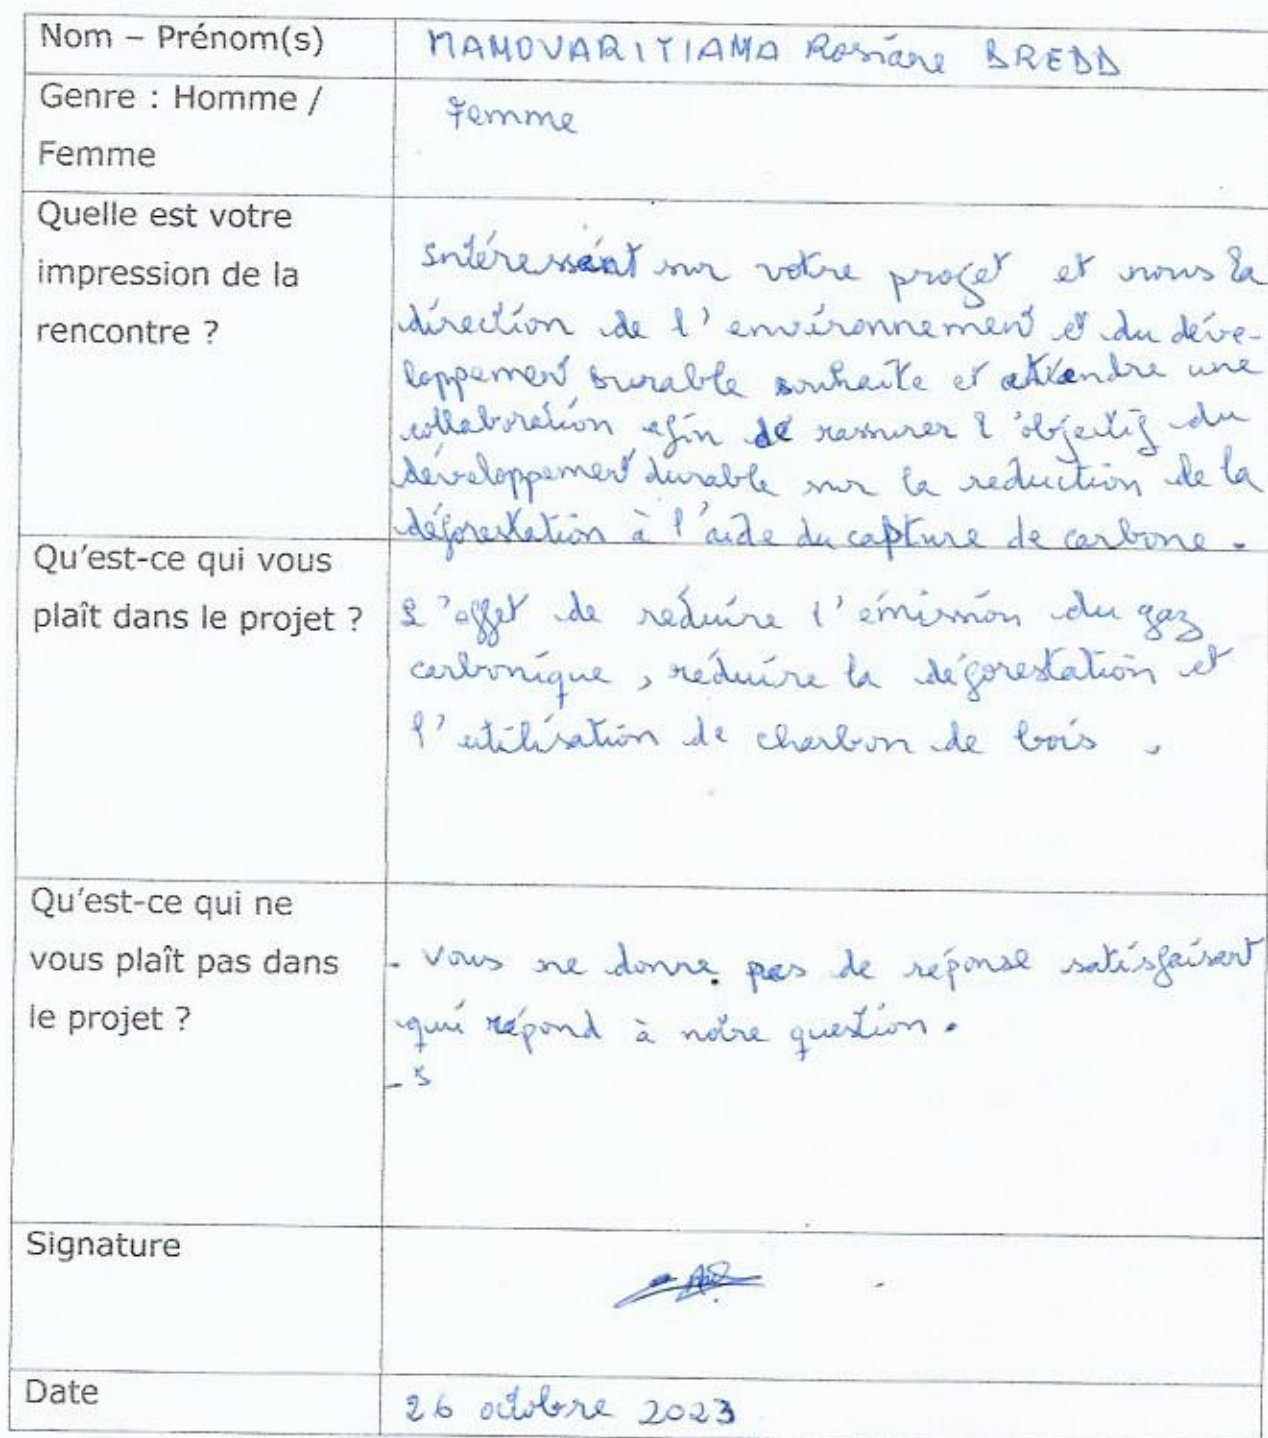 Nom – Prénom(s)
MAMOVARITIAMA Rosiane BREDD
Genre : Homme /
Femme
Femme
Quelle est votre
impression de la
rencontre ?
Intéressant sur votre projet et nous la
direction de l'environnement et du déve-
loppement durable souhaite et attendre une
collaboration afin de rassurer l'objectif du
développement durable sur la reduction de la
déforestation à l'aide du capture de carbone.
Qu'est-ce qui vous
plaît dans le projet ?
L'effet de reduire l'émission du gaz
carbonique, réduire la déforestation et
l'utilisation de charbon de bois.
Qu'est-ce qui ne
vous plaît pas dans
le projet ?
- Vous ne donne pas de réponse satisfaisant
qui répond à notre question.
-
Signature
Date
26 octobre 2023